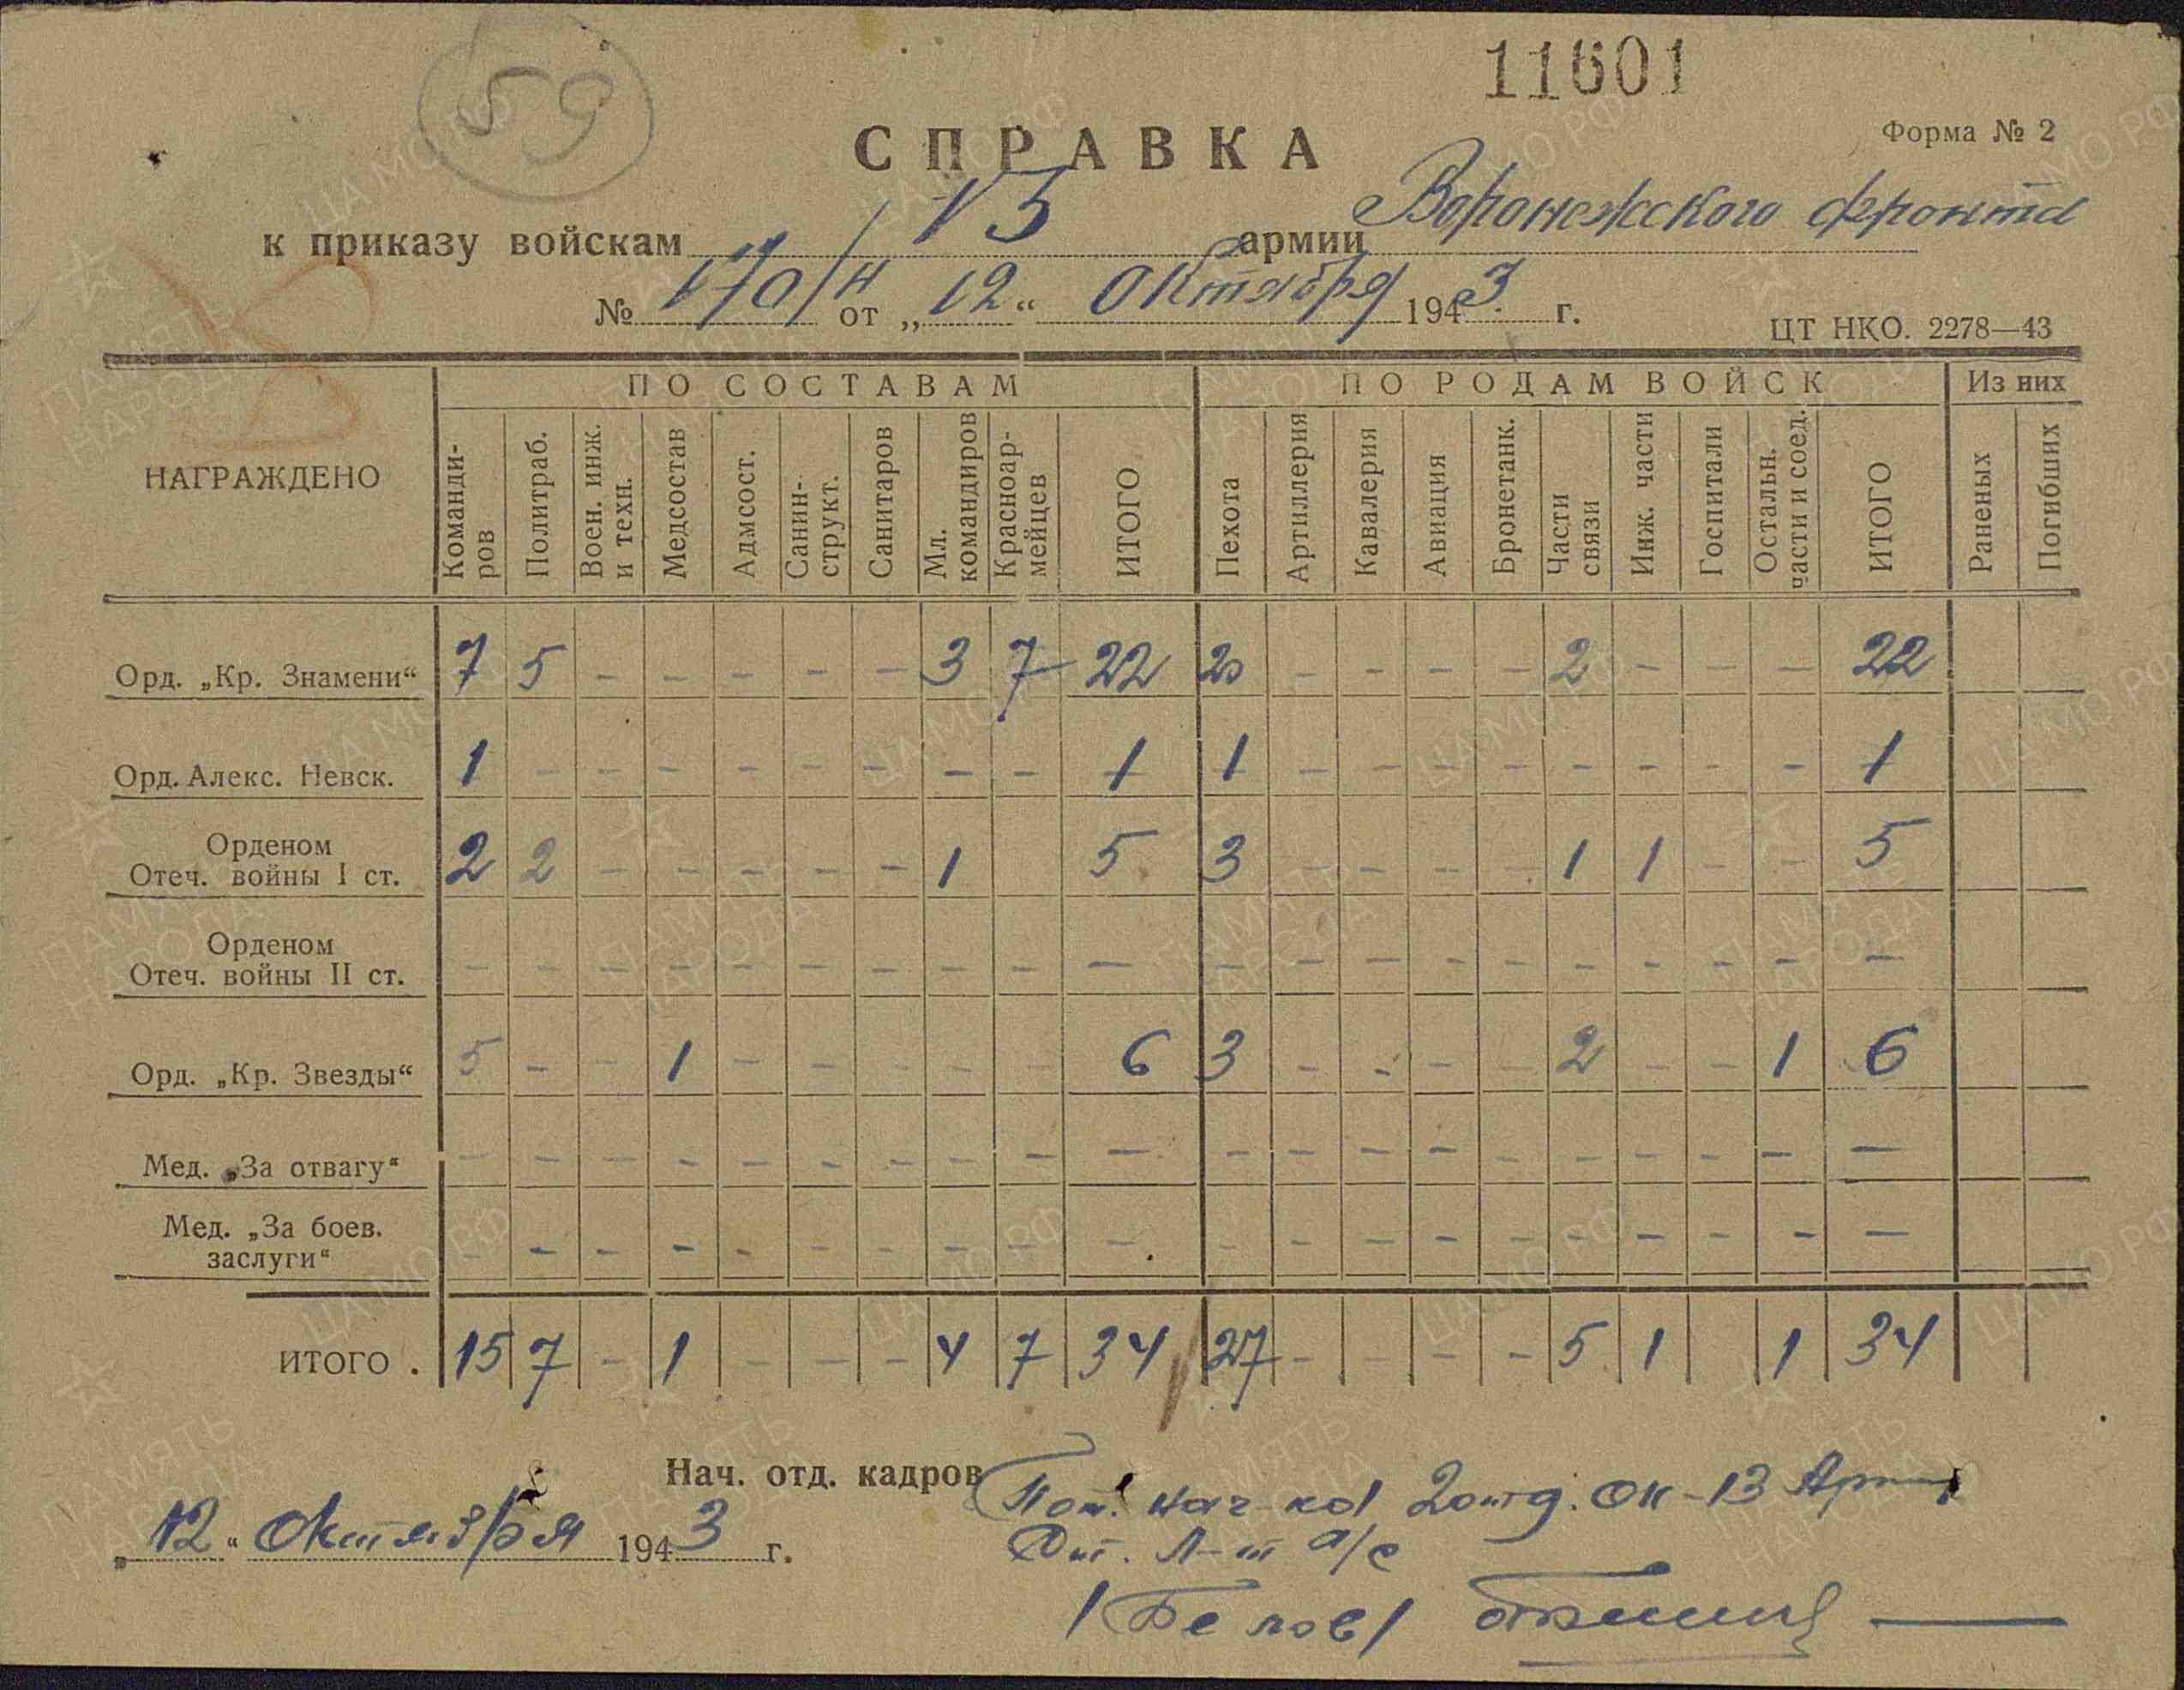 59
11601
СПРАВКА
Форма № 2
к приказу войскам 13 армии Воронежского фронта
№ 170/н от „12“ Октября 1943 г.
ЦТ НКО. 2278—43
НАГРАЖДЕНО ПО СОСТАВАМ ПО РОДАМ ВОЙСК Из них
Команди-ров Политраб. Воен. инж. и техн. Медсостав Адмсост. Санин-структ. Санитаров Мл. командиров Красноар-мейцев ИТОГО Пехота Артиллерия Кавалерия Авиация Бронетанк. Части связи Инж. части Госпитали Остальн. части и соед. ИТОГО Раненых Погибших
Орд. „Кр. Знамени“ 7 5 – – – – – 3 7 22 20 – – – – 2 – – – 22
Орд. Алекс. Невск. 1 – – – – – – – – 1 1 – – – – – – – – 1
Орденом
Отеч. войны I ст. 2 2 – – – – – 1 5 3 – – – – 1 1 – – 5
Орденом
Отеч. войны II ст. – – – – – – – – – – – – – – – – – – – –
Орд. „Кр. Звезды“ 5 – – 1 – – – – – 6 3 – – – – 2 – – 1 6
Мед. „За отвагу“ – – – – – – – – – – – – – – – – – – – –
Мед. „За боев.
заслуги“ – – – – – – – – – – – – – – – – – – – –
ИТОГО . 15 7 – 1 – – – 4 7 34 27 – – – – 5 1 1 34
Нач. отд. кадров Пом. нач-ка 2 отд. ОК-13 Армии
„12“ Октября 1943 г.
Л-т а/с
/Белов/